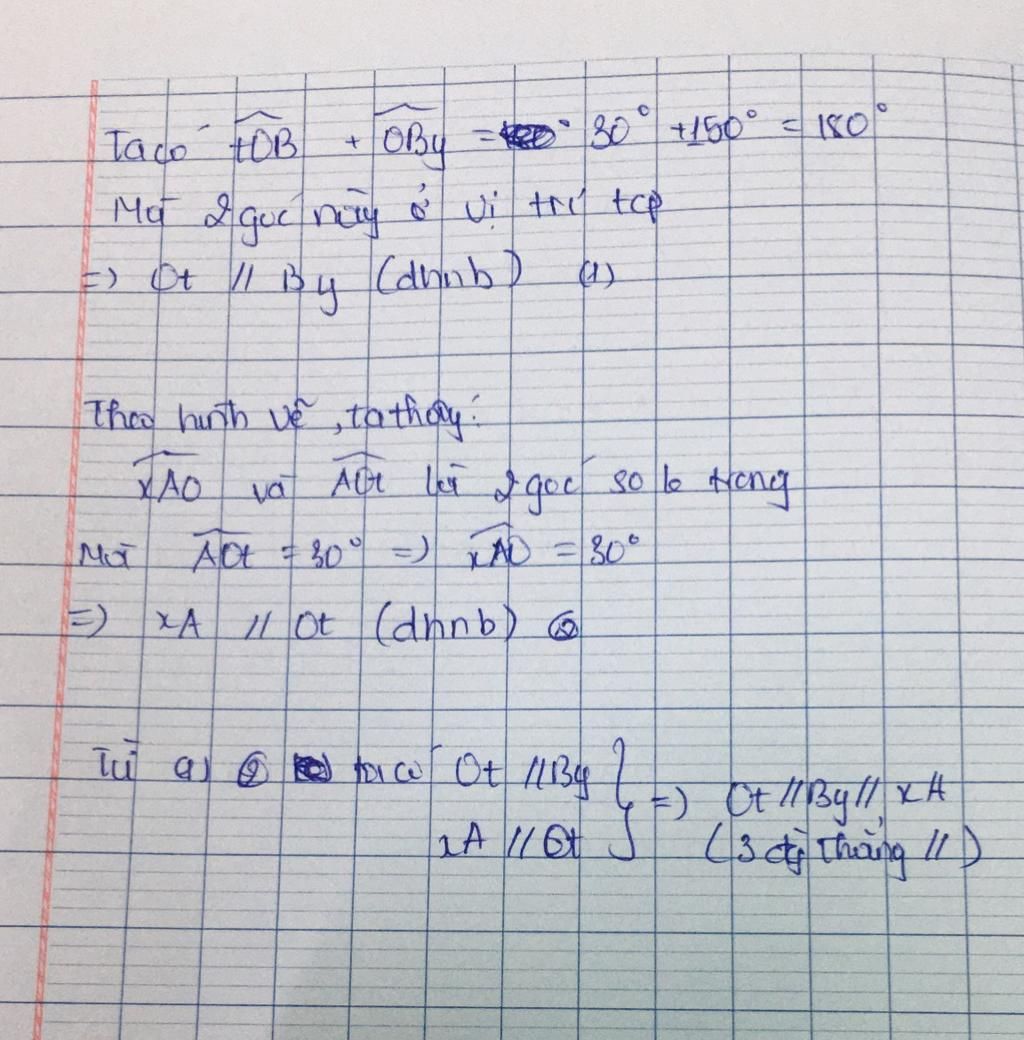 Ta có tOB + OBy = 30° + 150° = 180°
Mà 2 góc này ở vị trí tcp
=> Ot // By (dhnb) (1)
Theo hình vẽ, ta thấy:
xAO và AOt là 2 góc so le trong
Mà AOt = 30° => xAO = 30°
=> xA // Ot (dhnb) (2)
Từ (1) (2) ta có Ot // By } => Ot // By // xA
xA // Ot (3 đg thẳng //)